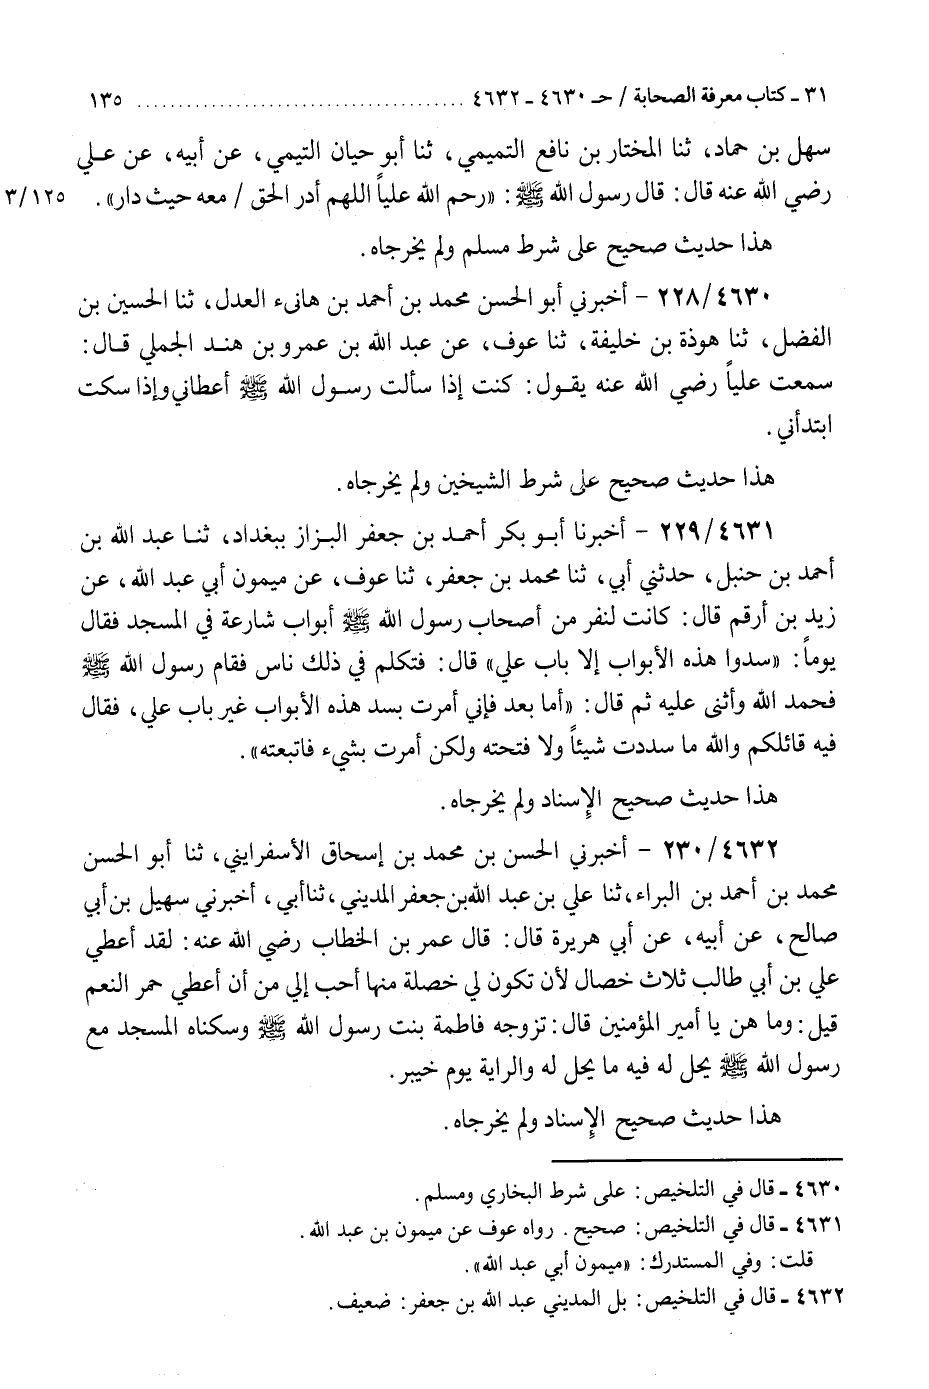 ٣١ ـ كتاب معرفة الصحابة / حـ ٤٦٣٠ ـ ٤٦٣٢ ........................................ ١٣٥
سهل بن حماد، ثنا المختار بن نافع التميمي، ثنا أبو حيان التيمي، عن أبيه، عن علي
رضي الله عنه قال: قال رسول الله ﷺ: «رحم الله علياً اللهم أدر الحق / معه حيث دار». ٣/١٢٥
هذا حديث صحيح على شرط مسلم ولم يخرجاه.
٢٢٨/٤٦٣٠ – أخبرني أبو الحسن محمد بن أحمد بن هانىء العدل، ثنا الحسين بن
الفضل، ثنا هوذة بن خليفة، ثنا عوف، عن عبد الله بن عمرو بن هند الجملي قال:
سمعت علياً رضي الله عنه يقول: كنت إذا سألت رسول الله ﷺ أعطاني وإذا سكت
ابتدأني.
هذا حديث صحيح على شرط الشيخين ولم يخرجاه.
٢٢٩/٤٦٣١ – أخبرنا أبو بكر أحمد بن جعفر البزاز ببغداد، ثنا عبد الله بن
أحمد بن حنبل، حدثني أبي، ثنا محمد بن جعفر، ثنا عوف، عن ميمون أبي عبد الله، عن
زيد بن أرقم قال: كانت لنفر من أصحاب رسول الله ﷺ أبواب شارعة في المسجد فقال
يوماً: «سدوا هذه الأبواب إلا باب علي» قال: فتكلم في ذلك ناس فقام رسول الله ﷺ
فحمد الله وأثنى عليه ثم قال: «أما بعد فإني أمرت بسد هذه الأبواب غير باب علي، فقال
فيه قائلكم والله ما سددت شيئاً ولا فتحته ولكن أمرت بشيء فاتبعته».
هذا حديث صحيح الإسناد ولم يخرجاه.
٢٣٠/٤٦٣٢ – أخبرني الحسن بن محمد بن إسحاق الأسفرايني، ثنا أبو الحسن
محمد بن أحمد بن البراء، ثنا علي بن عبد الله بن جعفر المديني، ثنا أبي، أخبرني سهيل بن أبي
صالح، عن أبيه، عن أبي هريرة قال: قال عمر بن الخطاب رضي الله عنه: لقد أعطي
علي بن أبي طالب ثلاث خصال لأن تكون لي خصلة منها أحب إلي من أن أعطي حمر النعم
قيل: وما هن يا أمير المؤمنين قال: تزوجه فاطمة بنت رسول الله ﷺ وسكناه المسجد مع
رسول الله ﷺ يحل له فيه ما يحل له والراية يوم خيبر.
هذا حديث صحيح الإسناد ولم يخرجاه.
٤٦٣٠ ـ قال في التلخيص: على شرط البخاري ومسلم.
٤٦٣١ ـ قال في التلخيص: صحيح. رواه عوف عن ميمون بن عبد الله.
قلت: وفي المستدرك: «ميمون أبي عبد الله».
٤٦٣٢ ـ قال في التلخيص: بل المديني عبد الله بن جعفر: ضعيف.